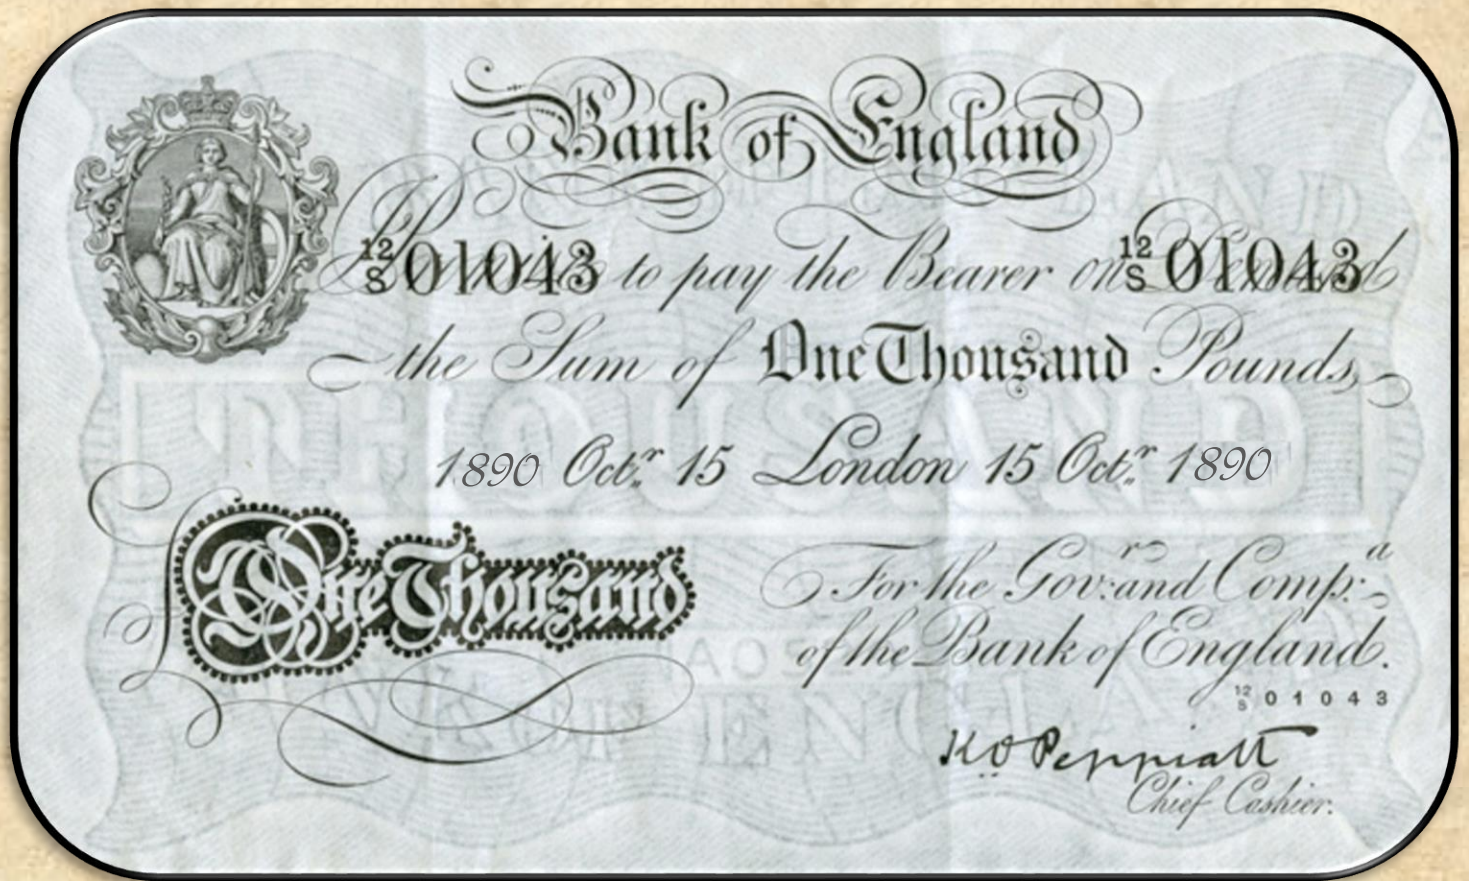 Bank of England
12/S 01043 to pay the Bearer on 12/S 01043
the Sum of One Thousand Pounds,
1890 Octr. 15 London 15 Octr. 1890
One Thousand
For the Govr: and Compa:
of the Bank of England.
12/S 01043
K.O Peppiatt
Chief Cashier.
THOUSAND